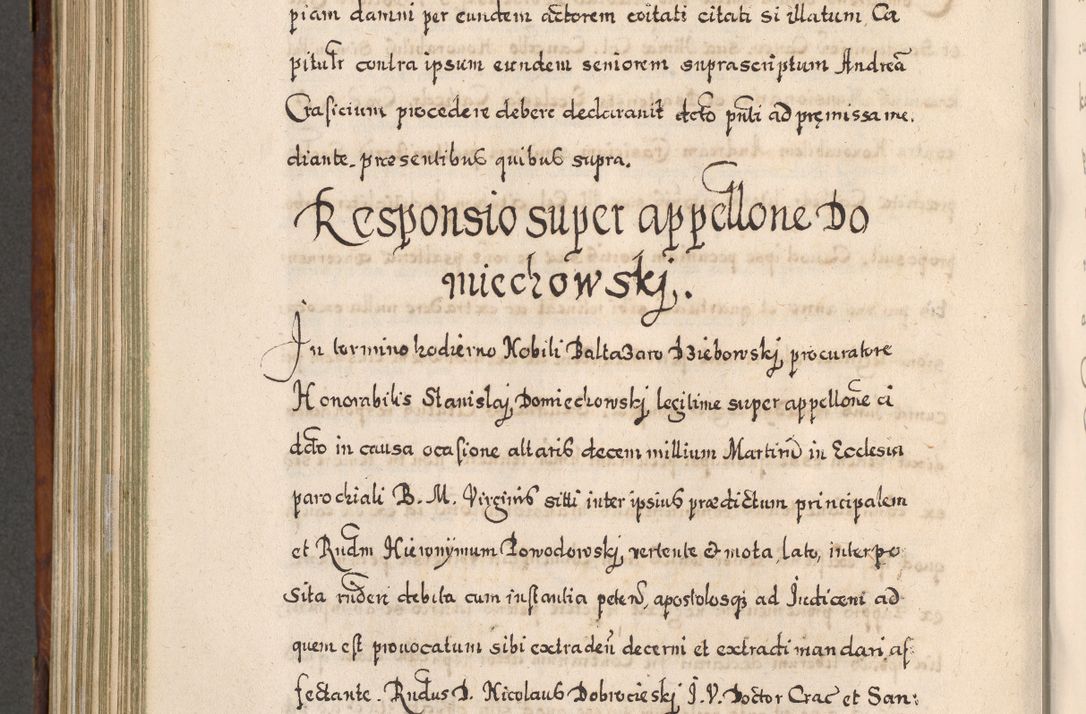 piam damni per eundem actorem coitati citati si illatum, Ca
pitulr contra ipsum eundem seniorem suprascriptum Andreā
Crasicium procedere debere declaranit dcto pnti ad pręmissa me.
diante. præsentibus quibus supra.
Responsio super appellone Do
miechowskj.
In termino hodierno Nobili Baltazaro Dziebowskj, procuratore
Honorabilis Stanislaj Domiechowskj, legitime super appellone ci
dcto in causa ocasione altaris decem millium Martirū in Ecclesia
parochiali B. M. Virginis sitti inter ipsius prædictum principalem
et Rndm Hieronÿmum Powodowskj, vertente & mota, lato, interpo
sita rnderi debita cum instantia peten, apostolosqꝫ ad Iudicem ad
quem est prouocatum sibi extraden decerni et extradi mandari af
fectante. Rndus D. Nicolaus Dobrocieskj I. V. Doctor Crac et San: